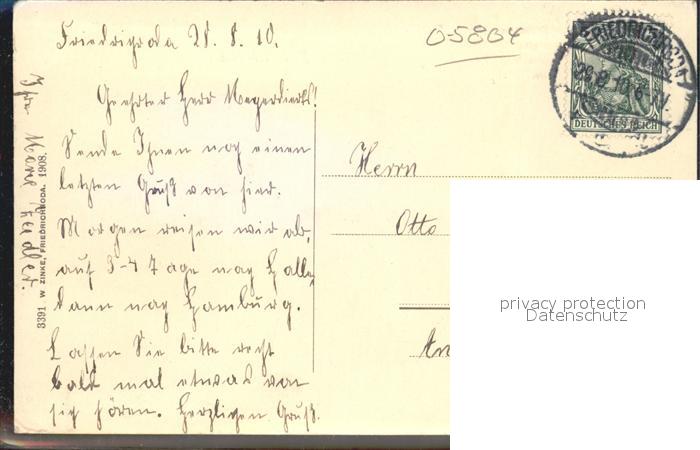 Friedrichroda 28. 8. 10.
Geehrter Herr Meyerdierks!
Sende Ihnen noch einen
letzten Gruß von hier.
Morgen reisen wir ab,
auf 3-4 Tage nach Halle,
dann nach Hamburg.
Lassen Sie bitte recht
bald mal etwas von
sich hören. Herzlichen Gruß.
Ihr
3391 W. ZINKE, FRIEDRICHRODA. 1908.
O-5804
FRIEDRICHRODA
DEUTSCHES REICH
Herrn
Otto
An
privacy protection
Datenschutz